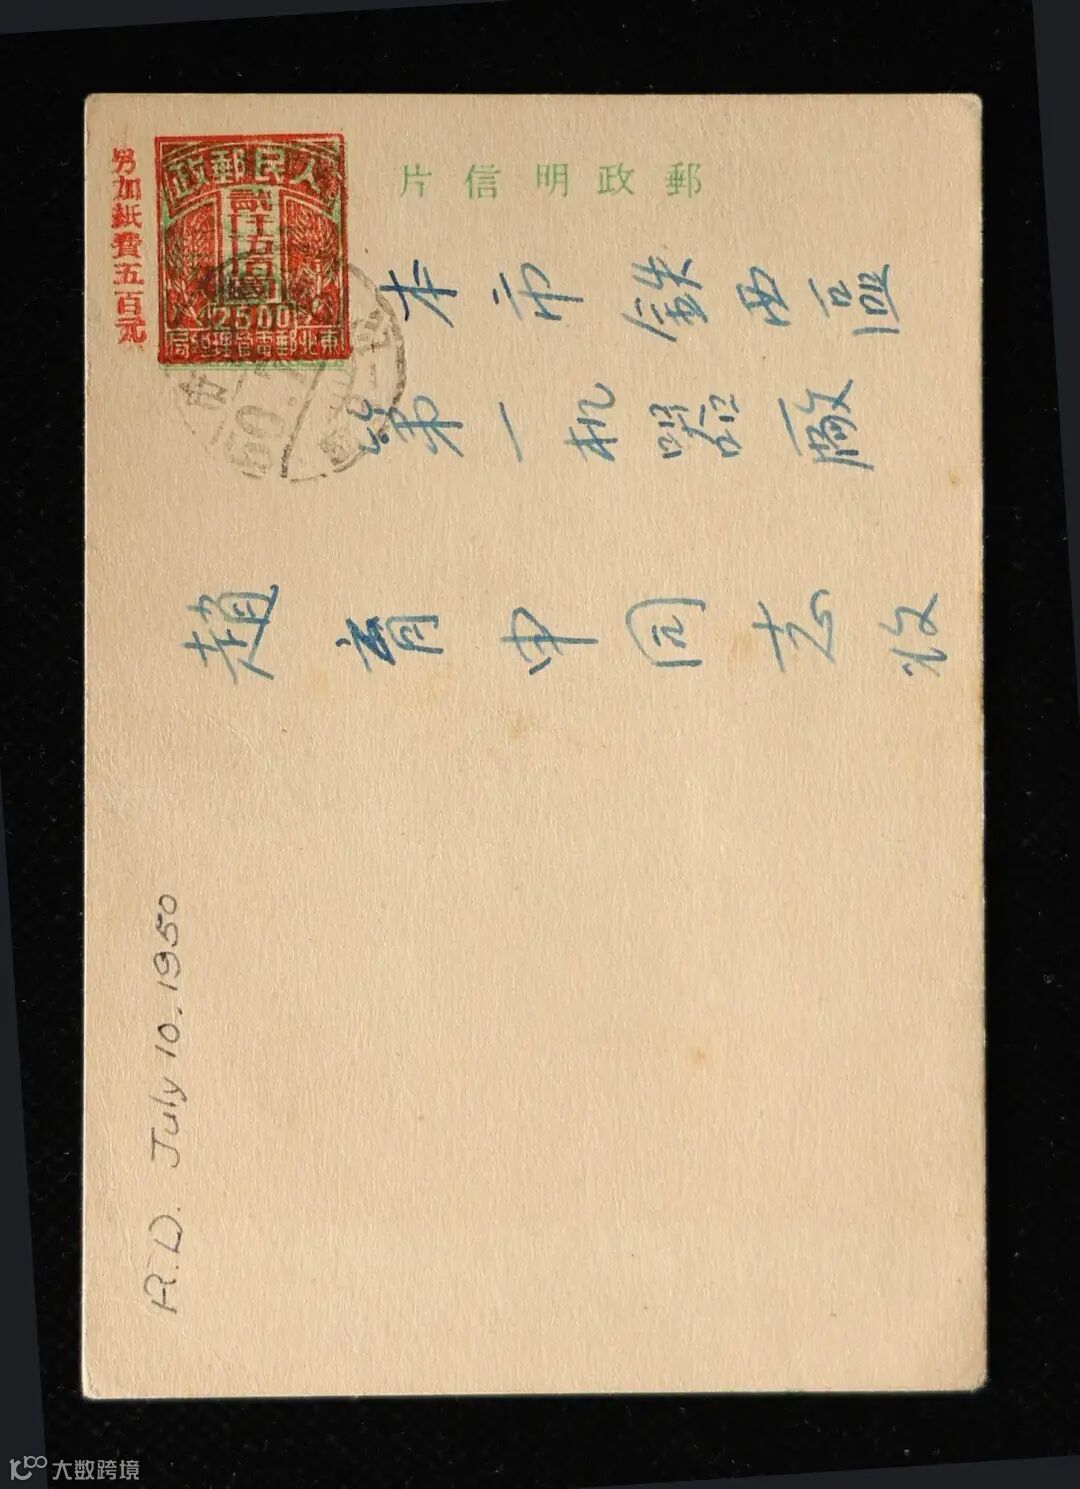 郵政明信片
另加紙費五百元
人民郵政
貳仟五百圓
2500
東北郵電管理總局
50.
本市鉄西區
第一机器廠
趙育申同志收
R.D. July 10, 1950
大数跨境